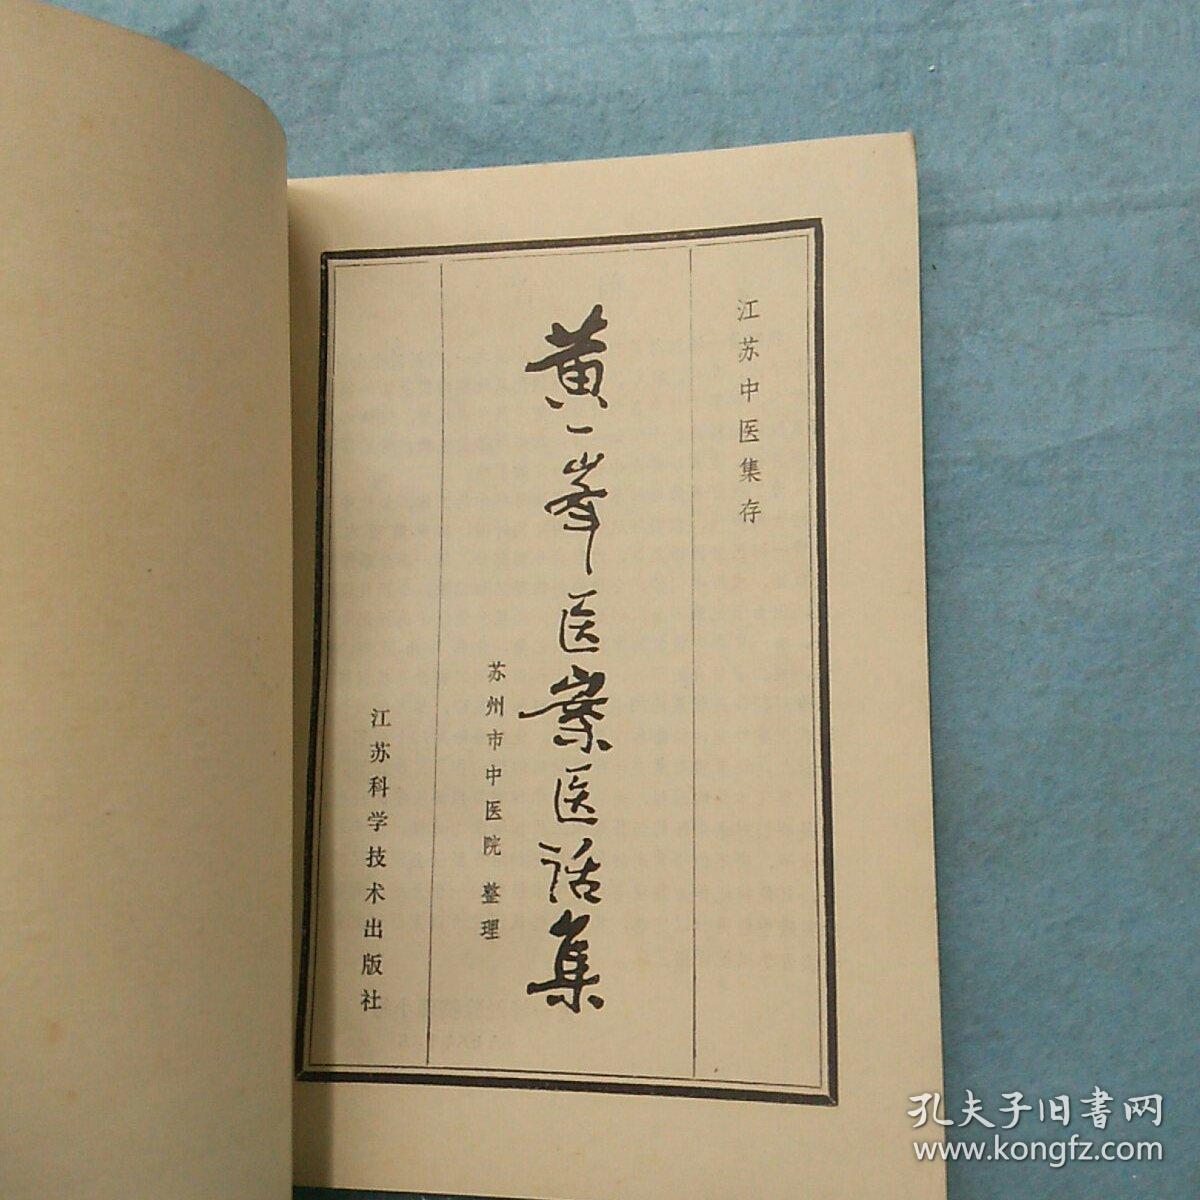 江苏中医集存
黄一峯医案医话集
苏州市中医院 整理
江苏科学技术出版社
孔夫子旧书网
www.kongfz.com